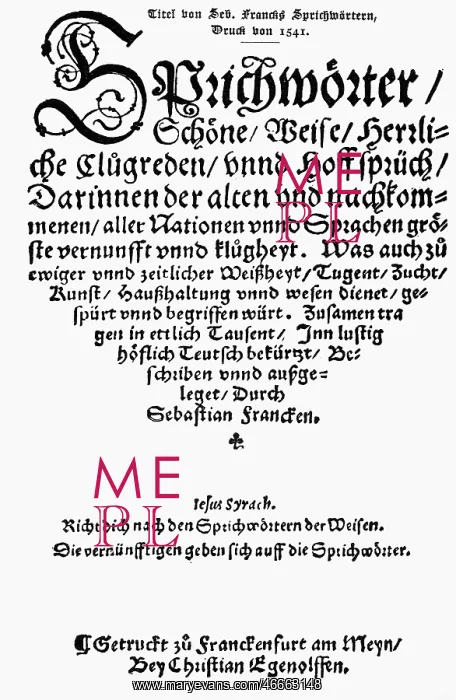 Titel von Seb. Francks Sprichwörtern,
Druck von 1541.
SPrichwörter /
Schöne / Weise / Herrli=
che Clůgreden / vnnd Hoffsprüch /
Darinnen der alten vnd nachkom=
menen / aller Nationen vnnd Sprachen grö=
ste vernunfft vnnd klůgheyt. Was auch zů
ewiger vnnd zeitlicher Weißheyt / Tugent / Zucht /
Kunst / Haußhaltung vnnd wesen dienet / ge=
spürt vnnd begriffen würt. Zusamen tra
gen in ettlich Tausent / Inn lustig
höflich Teutsch bekürtzt / Be=
schriben vnnd außge=
leget / Durch
Sebastian Francken.
ME
PL
Iesus Syrach.
Richt dich nach den Sprichwörtern der Weisen.
Die vernünfftigen geben sich auff die Sprichwörter.
ME
PL
¶ Getruckt zů Franckenfurt am Meyn /
Bey Christian Egenolffen.
www.maryevans.com/46663148